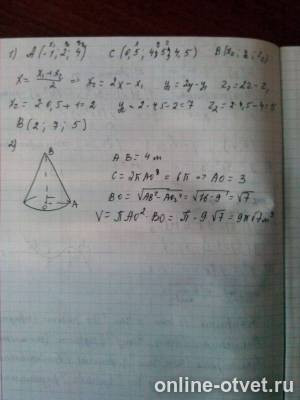 1) A (-1; 2; 4)   C (0,5; 4,5; 4,5)   B (x₂; y₂; z₂)
x = (x₁+x₂)/2 ⇒ x₂ = 2x - x₁   y₂ = 2y - y₁   z₂ = 2z - z₁
x₂ = 2·0,5 + 1 = 2   y₂ = 2·4,5 - 2 = 7   z₂ = 2·4,5 - 4 = 5
B (2; 7; 5)
2)
B
A
AB = 4 м
C = 2πAO = 6π ⇒ AO = 3
BO = √AB² - AO² = √16 - 9 = √7
V = πAO²·BO = π·9√7 = 9π√7 м³
online-otvet.ru